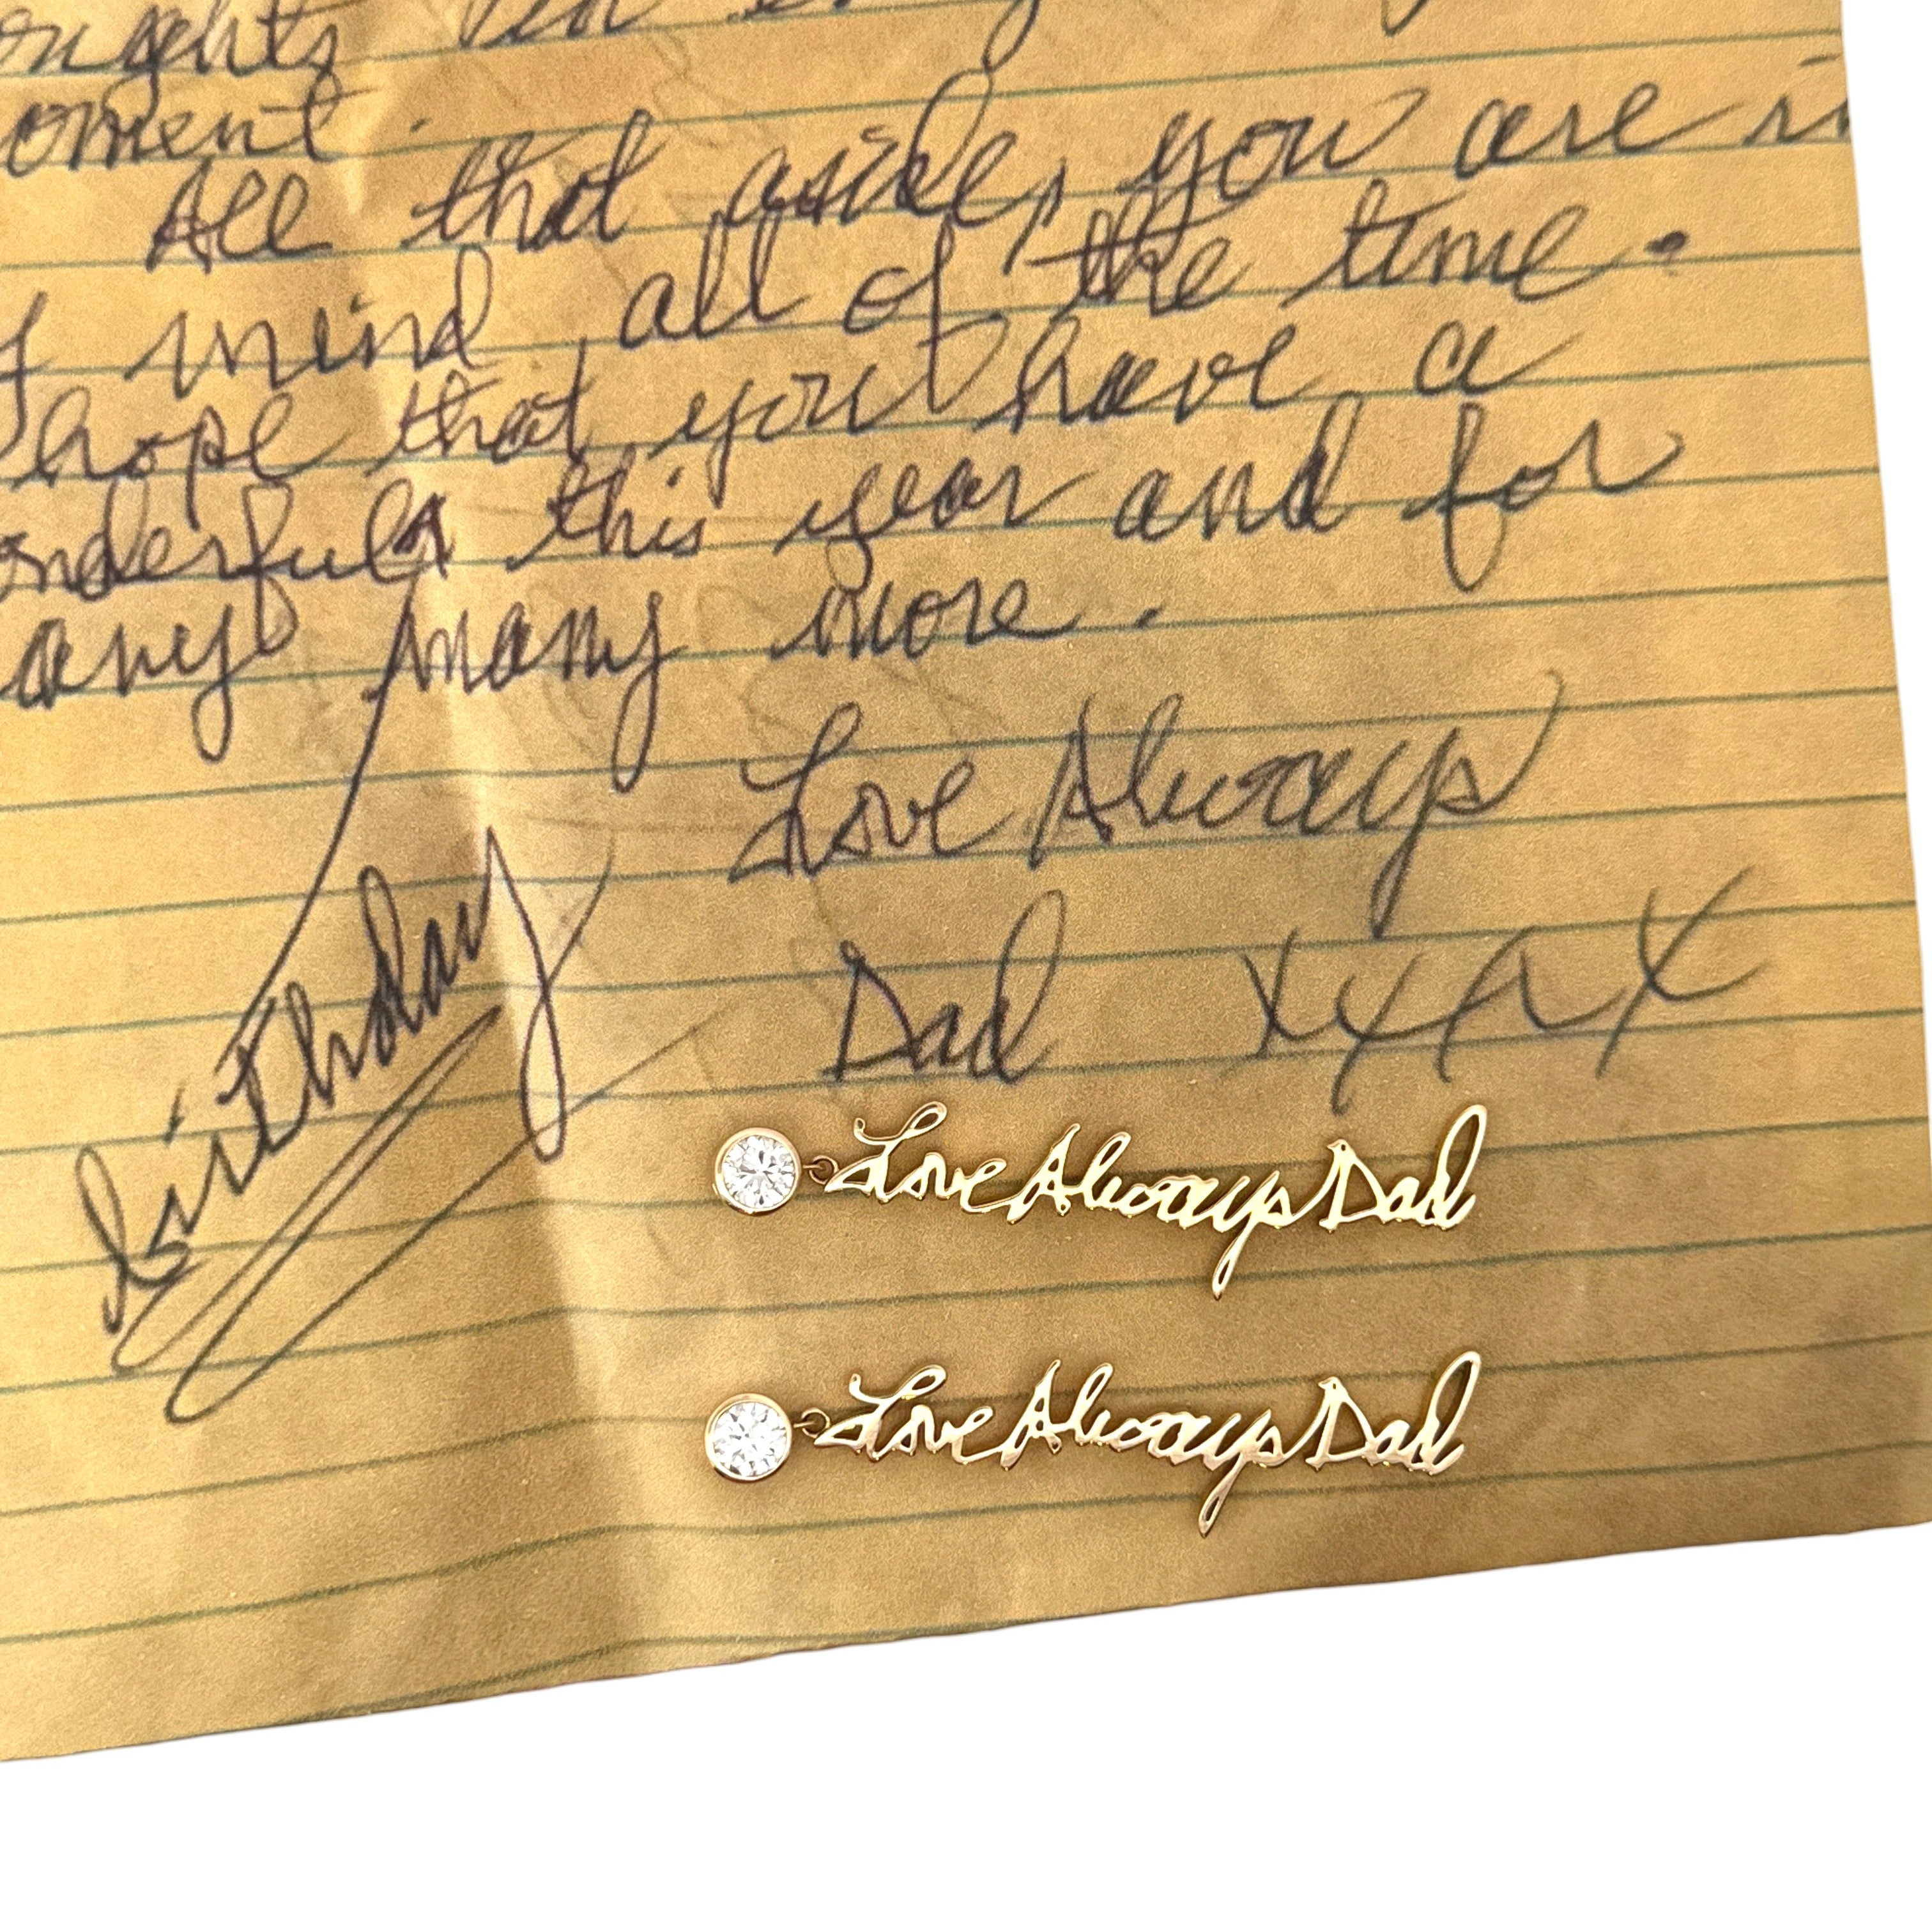 oughts
oment.
All that aside, you are in
y mind all of the time.
I hope that you have a
onderful this year and for
any many more.
birthday
Love Always
Dad xxxx
Love Always Dad
Love Always Dad